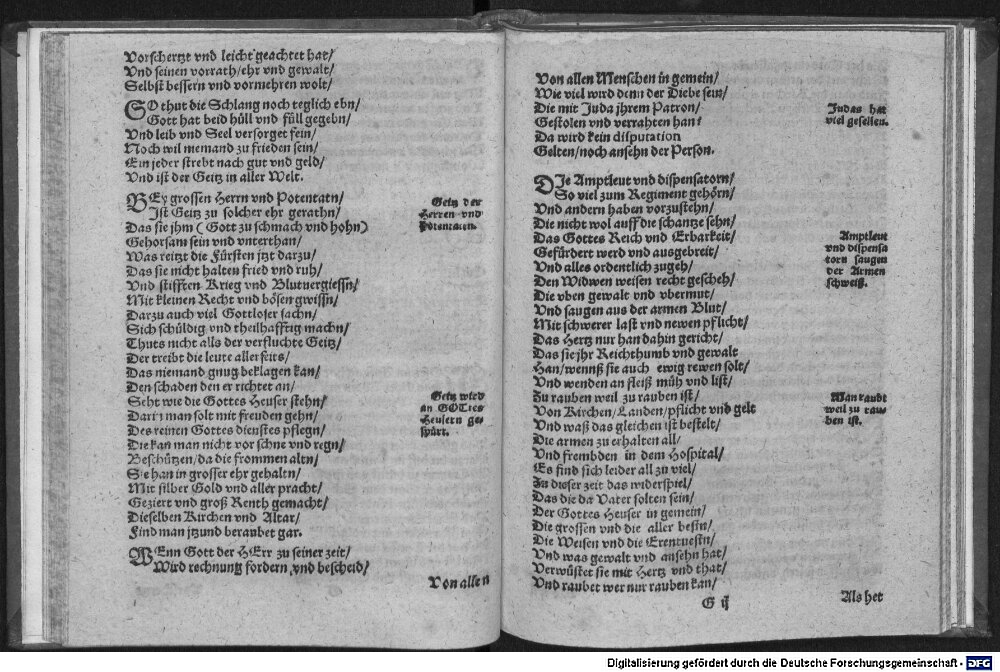 Vorschertzt vnd leicht geachtet hat/
Vnd seinen vorrath/ehr vnd gewalt/
Selbst bessern vnd vormehren wolt/
SO thut die Schlang noch teglich ebn/
Gott hat beid hüll vnd füll gegebn/
Vnd leib vnd Seel versorget fein/
Noch wil niemand zu frieden sein/
Ein jeder strebt nach gut vnd geld/
Vnd ist der Geitz in aller Welt.
BEy grossen Herrn vnd Potentatn/
Ist Geitz zu solcher ehr gerathn/
Das sie jhm (Gott zu schmach vnd hohn)
Gehorsam sein vnd vnterthan/
Was reitzt die Fürsten jtzt darzu/
Das sie nicht halten fried vnd ruh/
Vnd stifften Krieg vnd Blutvergiessn/
Mit kleinen Recht vnd bösen gwissn/
Darzu auch viel Gottloser sachn/
Sich schüldig vnd theilhafftig machn/
Thuts nicht als der verfluchte Geitz/
Der treibt die leute allerseits/
Das niemand gnug beklagen kan/
Den schaden den er richtet an/
Seht wie die Gottes Heuser stehn/
Darin man solt mit freuden gehn/
Des reinen Gottes dienstes pflegn/
Die kan man nicht vor schne vnd regn/
Beschützen/da die frommen altn/
Sie han in grosser ehr gehaltn/
Mit silber Gold vnd aller pracht/
Geziert vnd groß Renth gemacht/
Dieselben Kirchen vnd Altar/
Find man jtzund beraubet gar.
WEnn Gott der HErr zu seiner zeit/
Wird rechnung fordern vnd bescheid/
Geitz der
Herren vnd
Potentaten.
Geitz wird
an GOTtes
Heusern ge-
spürt.
Von allen
Von allen Menschen in gemein/
Wie viel wird denn der Diebe sein/
Die mit Juda jhrem Patron/
Gestolen vnd verrahten han?
Da wird kein disputation
Gelten/noch ansehn der Person.
DIe Amptleut vnd dispensatorn/
So viel zum Regiment gehörn/
Vnd andern haben vorzustehn/
Die nicht wol auff die schantze sehn/
Das Gottes Reich vnd Erbarkeit/
Gefördert werd vnd ausgebreit/
Vnd alles ordentlich zugeh/
Den Widwen weisen recht gescheh/
Die vben gewalt vnd vbermut/
Vnd saugen aus der armen Blut/
Mit schwerer last vnd newen pflicht/
Das Hertz nur han dahin gericht/
Das sie jhr Reichthumb vnd gewalt
Han/wennß sie auch ewig rewen solt/
Vnd wenden an fleiß müh vnd list/
Zu rauben weil zu rauben ist/
Von Kirchen/Landen/pflicht vnd gelt
Vnd waß das gleichen ist bestelt/
Die armen zu erhalten all/
Vnd frembden in dem Hospital/
Es find sich leider all zu viel/
In dieser zeit das widerspiel/
Das die da Vater solten sein/
Der Gottes Heuser in gemein/
Die grossen vnd die aller bestn/
Die Weisen vnd die Erentuestn/
Vnd was gewalt vnd ansehn hat/
Verwüstet sie mit Hertz vnd that/
Vnd raubet wer nur rauben kan/
Judas hat
viel gesellen.
Amptleut
vnd dispensa
torn saugen
der Armen
schweiß.
Man raubt
weil zu rau-
ben ist.
G ij
Als het
Digitalisierung gefördert durch die Deutsche Forschungsgemeinschaft - DFG